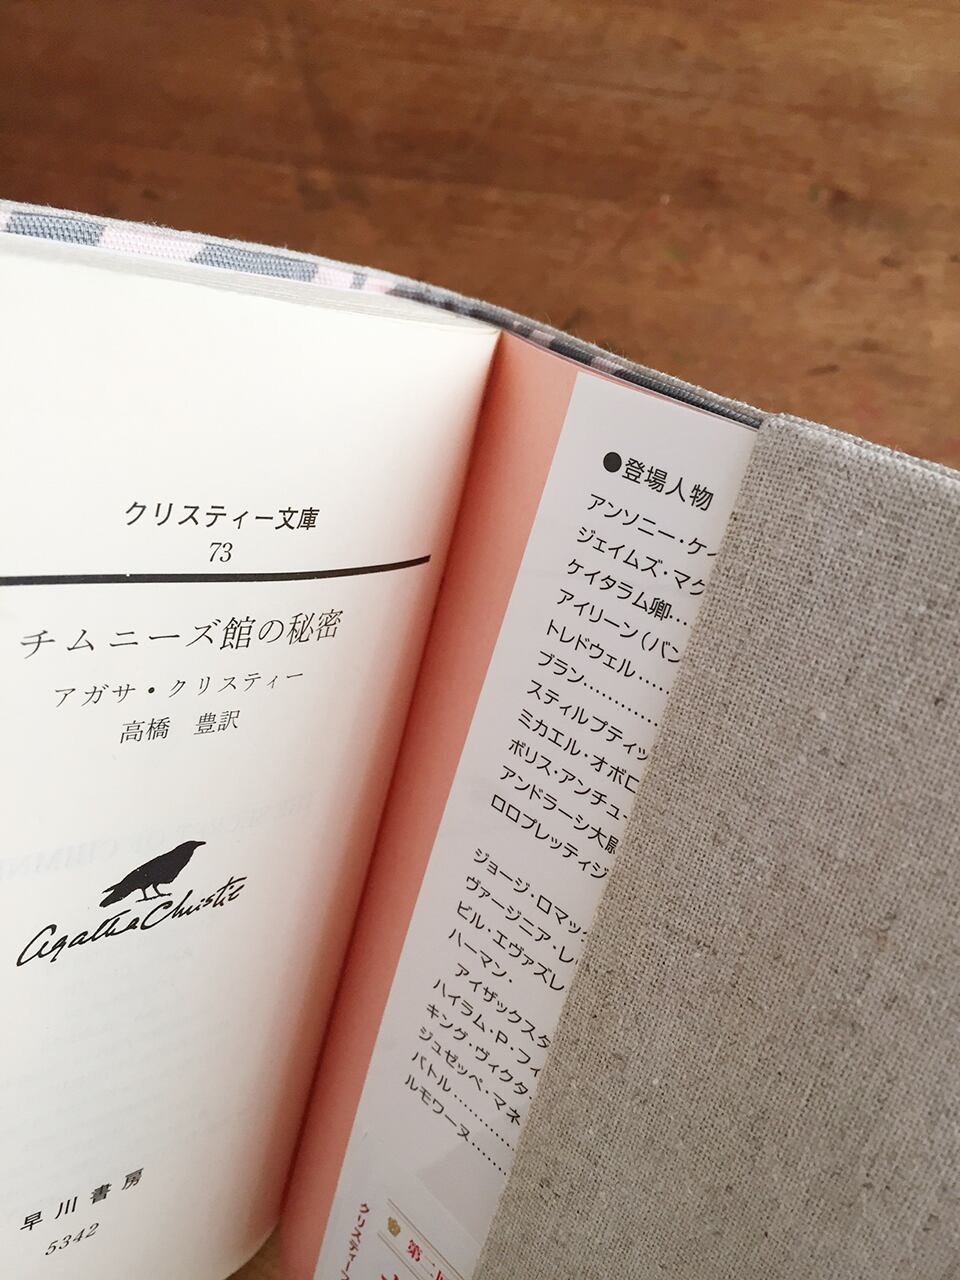 クリスティー文庫
73
チムニーズ館の秘密
アガサ・クリスティー
高橋 豊訳
Agatha Christie
早川書房
5342
●登場人物
アンソニー・ケイ
ジェイムズ・マク
ケイタラム卿…
アイリーン(バン
トレドウェル……
ブラン…………
スティルプティッ
ミカエル・オボロ
ボリス・アンチュー
アンドラーシ大尉
ロロプレッティジ
ジョージ・ロマッ
ヴァージニア・レ
ビル・エヴァズレ
ハーマン・
アイザックスタ
ハイラム・P・フィ
キング・ヴィクタ
ジュゼッペ・マネ
バトル…………
ルモワーヌ……
第二
クリスティー